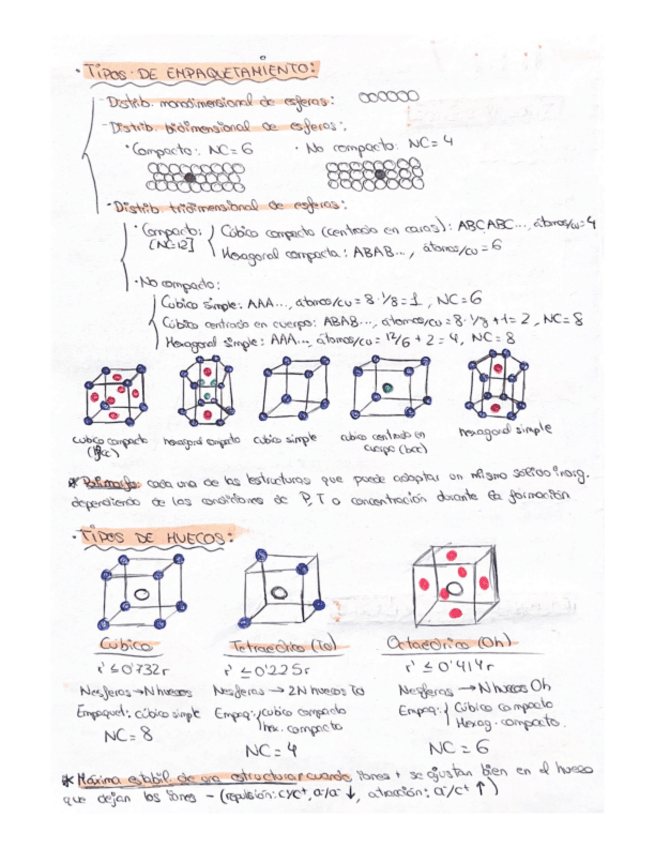 · TIPOS DE EMPAQUETAMIENTO:
- Distrib. monodimensional de esferas:
- Distrib. bidimensional de esferas:
· Compacto: NC=6 · No compacto: NC=4
· Distrib. tridimensional de esferas:
· Compacto: [NC=12]
Cúbico compacto (centrado en caras): ABCABC..., átomos/cu=4
Hexagonal compacta: ABAB..., átomos/cu=6
· No compacto:
Cúbico simple: AAA..., átomos/cu=8·1/8=1, NC=6
Cúbico centrado en cuerpo: ABAB..., átomos/cu=8·1/8+1=2, NC=8
Hexagonal simple: AAA..., átomos/cu=12/6+2=4, NC=8
cúbico compacto (fcc) hexagonal compacto cúbico simple cúbico centrado en cuerpo (bcc) hexagonal simple
* Polimorfo: cada una de las estructuras que puede adoptar un mismo sólido inorg.
dependiendo de las condiciones de P, T o concentración durante la formación
· TIPOS DE HUECOS:
Cúbico Tetraédrico (Td) Octaédrico (Oh)
r' ≤ 0'732r r' ≤ 0'225r r' ≤ 0'414r
N esferas → N huecos N esferas → 2N huecos Td N esferas → N huecos Oh
Empaquet: cúbico simple Empaq: cúbico compacto Empaq: Cúbico compacto
hex. compacto Hexag. compacto.
NC=8 NC=4 NC=6
* Máxima estabil. de una estructura cuando iones + se ajustan bien en el hueco
que dejan los iones - (repulsión: c⁺/c⁺, a⁻/a⁻ ↓, atracción: a⁻/c⁺ ↑)